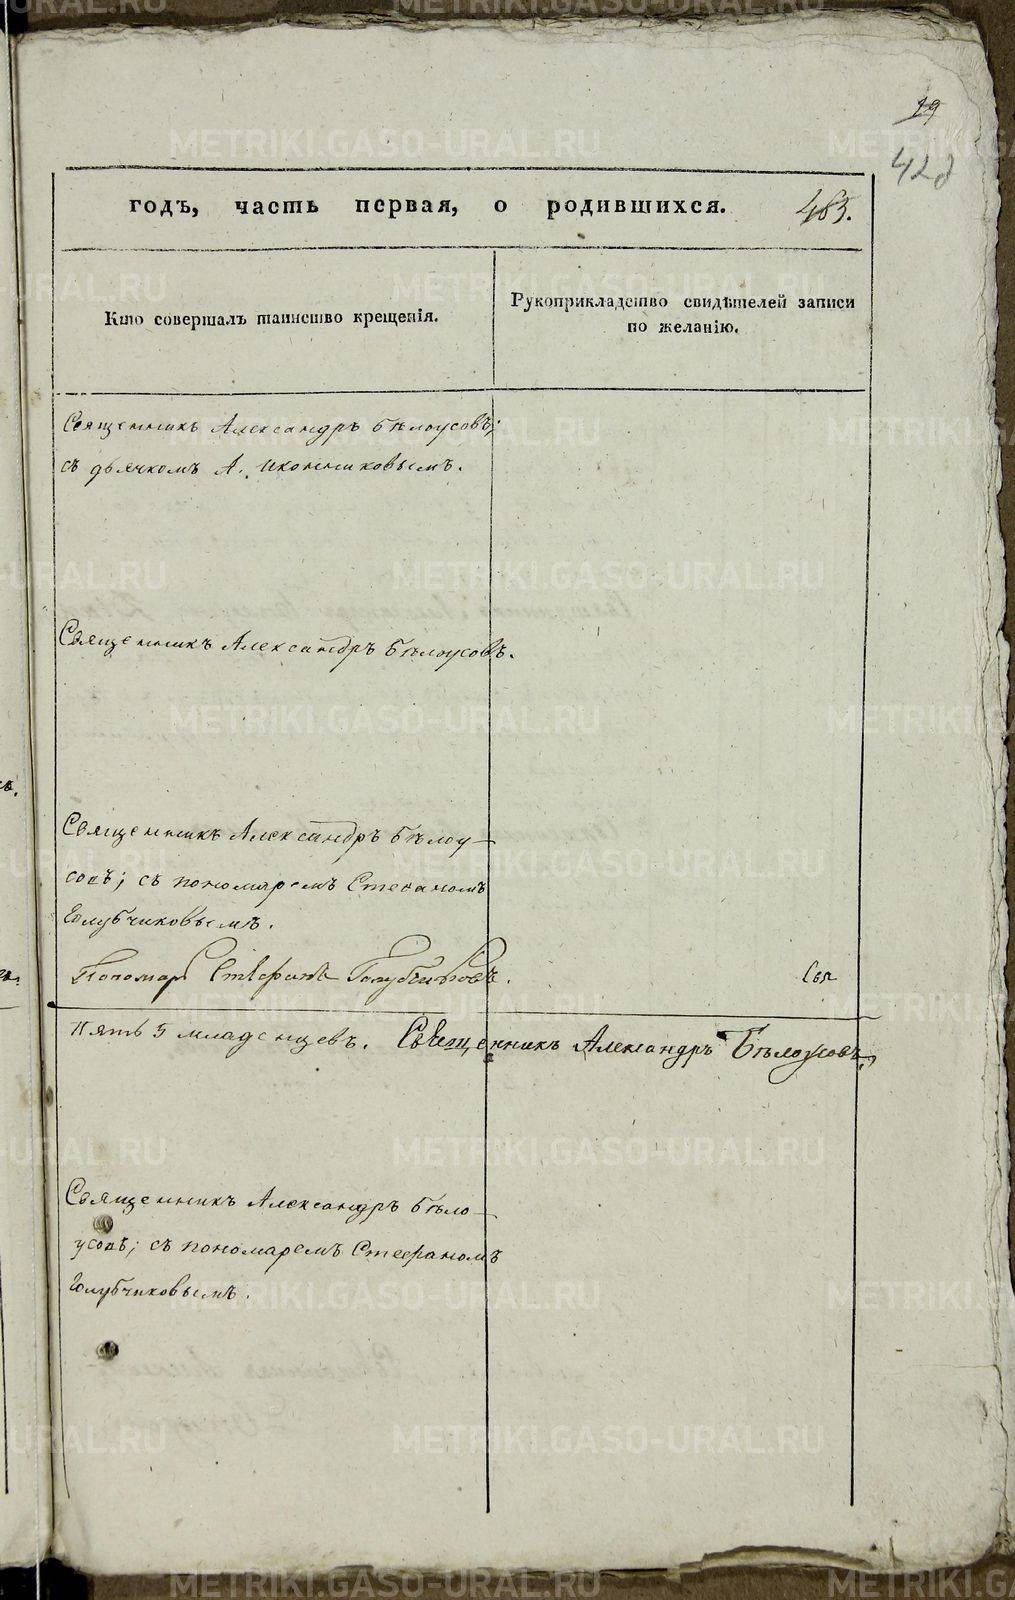 29
428
годъ, часть первая, о родившихся. 483.
Кто совершалъ таинство крещенія.
Рукоприкладство свидѣтелей записи по желанію.
Священникъ Александръ Бѣлоусовъ;
съ дьячкомъ А. Иконниковымъ.
Священникъ Александръ Бѣлоусовъ.
Священникъ Александръ Бѣлоу-
совъ; съ пономаремъ Стефаномъ
Голубчиковымъ.
Пономарь Стефанъ Голубчиковъ.
Пять 5 младенцевъ. Священникъ Александръ Бѣлоусовъ,
Священникъ Александръ Бѣло-
усовъ; съ пономаремъ Стефаномъ
Голубчиковымъ.
METRIKI.GASO-URAL.RU